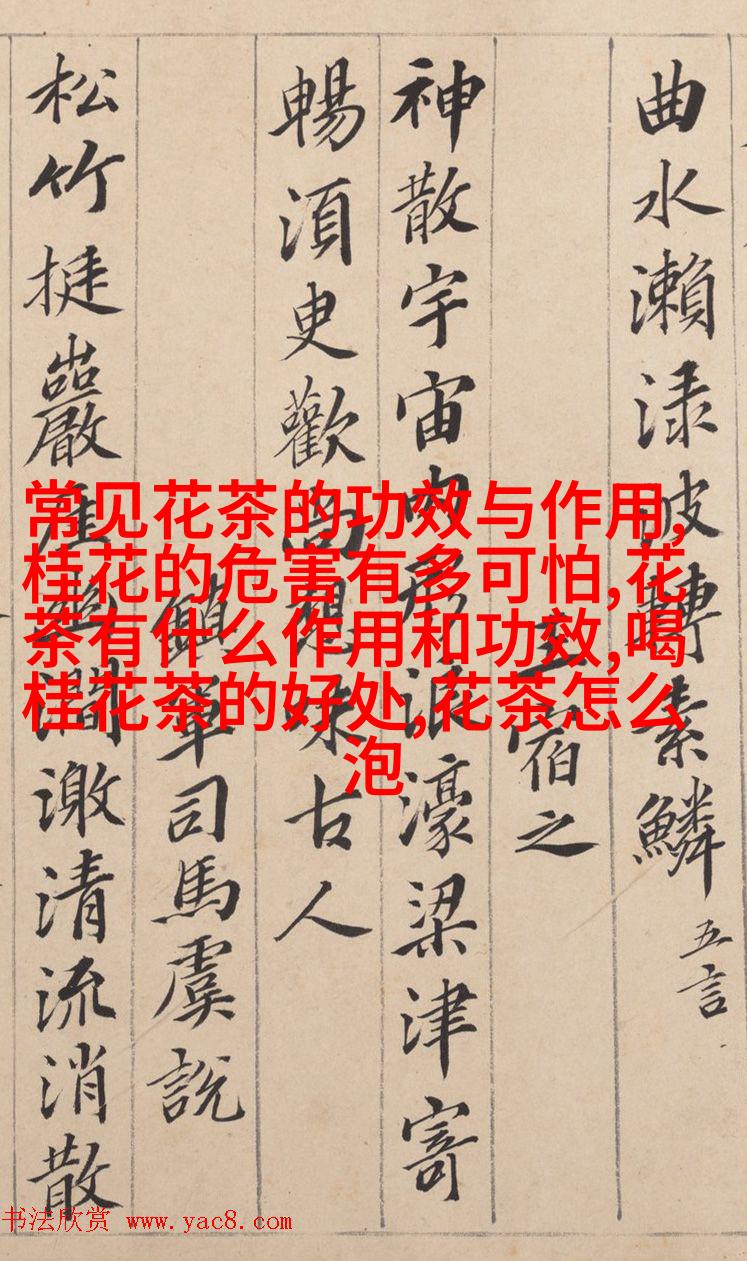 曲水瀨渌波轉素鱗 五言
宿之
神散宇宙內浪濠梁津寄
暢湏臾歡尚想味古人
鎮軍司馬虞説
松竹挺巖崖幽澗激清流消散
常见花茶的功效与作用,
桂花的危害有多可怕,花
茶有什么作用和功效,喝
桂花茶的好处,花茶怎么
泡
书法欣赏 www.yac8.com